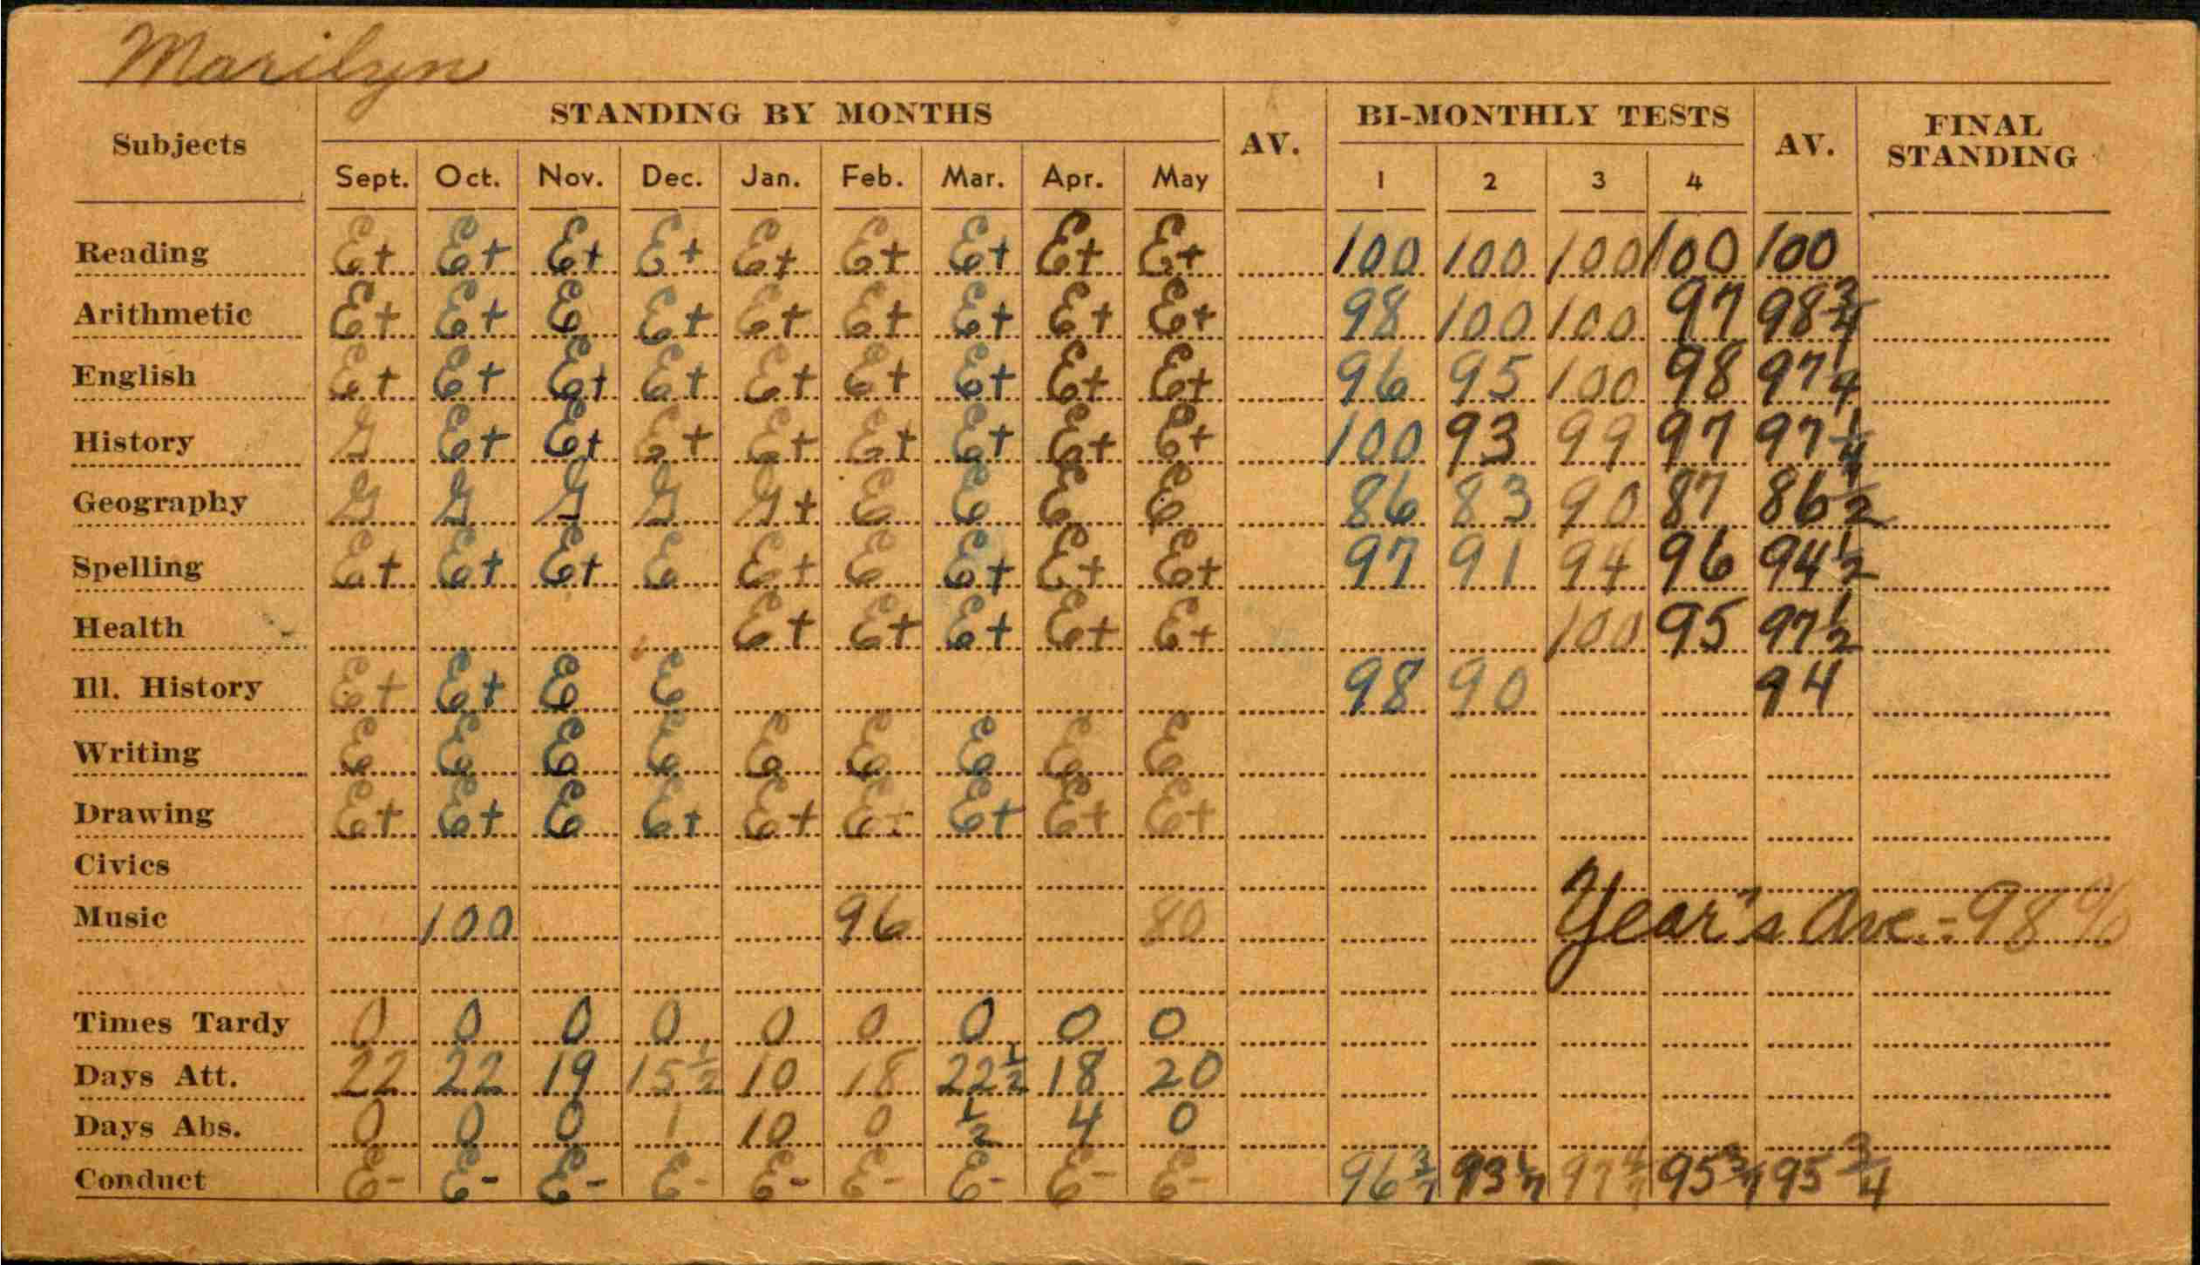 Marilyn
Subjects STANDING BY MONTHS AV. BI-MONTHLY TESTS AV. FINAL STANDING
Sept. Oct. Nov. Dec. Jan. Feb. Mar. Apr. May 1 2 3 4
Reading E+ E+ E+ E+ E+ E+ E+ E+ E+ 100 100 100 100 100
Arithmetic E+ E+ E E+ E+ E+ E+ E+ E+ 98 100 100 97 98 3/4
English E+ E+ E+ E+ E+ E+ E+ E+ E+ 96 95 100 98 97 1/4
History G E+ E+ E+ E+ E+ E+ E+ E+ 100 93 99 97 97 1/4
Geography G G G G G+ E E E E 86 83 90 87 86 1/2
Spelling E+ E+ E+ E E+ E E+ E+ E+ 97 91 94 96 94 1/2
Health E+ E+ E+ E+ E+ 100 95 97 1/2
Ill. History E+ E+ E E 98 90 94
Writing E E E E E E E E E
Drawing E+ E+ E E+ E+ E+ E+ E+ E+
Civics
Music 100 96 80 Year's Ave. = 98%
Times Tardy 0 0 0 0 0 0 0 0 0
Days Att. 22 22 19 15 1/2 10 18 22 1/2 18 20
Days Abs. 0 0 0 1 10 0 1/2 4 0
Conduct E- E- E- E- E- E- E- E- E- 96 3/7 93 1/7 97 4/7 95 3/7 95 3/4